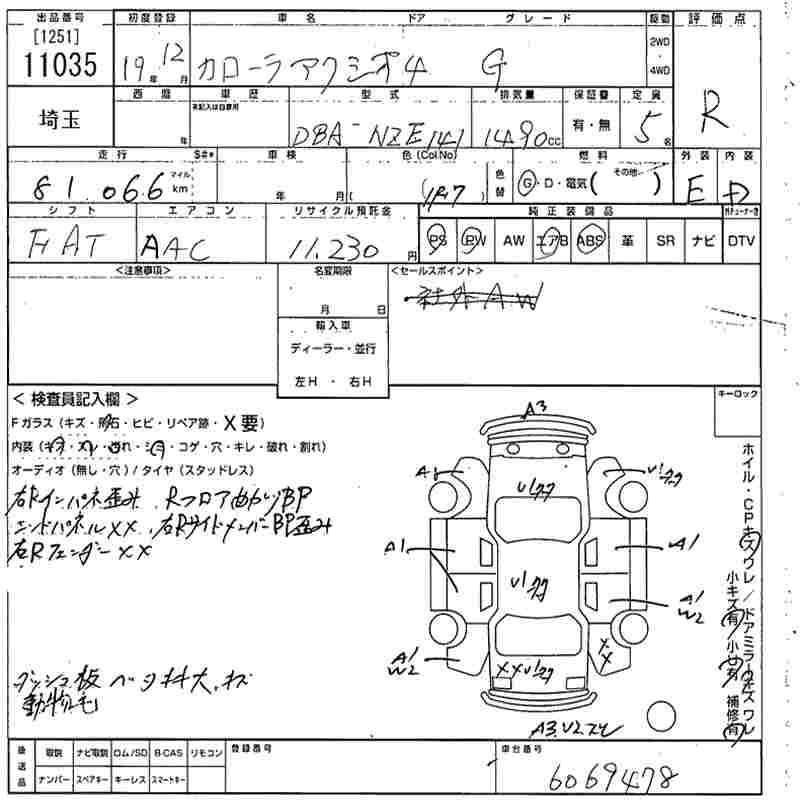 出品番号 初度登録 車名 ドア グレード 駆動 評価点
[1251]
11035 19年 12月 カローラアクシオ 4 G 2WD・4WD R
埼玉 西暦 年 車歴 未記入は自家用 型式 排気量 保証書 定員
DBA-NZE141 1490cc 有・無 5名
走行 S#* 車検 色(Col.No) 色替 燃料 外装 内装
81.066 マイル km 年 月 (1F7) G・D・電気(その他 ) E D
シフト エアコン リサイクル預託金 純正装備品
FAT AAC 11,230円 PS PW AW エアB ABS 革 SR ナビ DTV
<注意事項> 名変期限 <セールスポイント>
月 日 社外AW
輸入車
ディーラー・並行
左H・右H
<検査員記入欄> キーロック
Fガラス(キズ・飛石・ヒビ・リペア跡・X要)
内装(キズ・スレ・汚れ・シミ・コゲ・穴・キレ・破れ・割れ)
オーディオ(無し・穴)/タイヤ(スタッドレス)
右Rインパネ歪み RフロアめがりBP
エンドパネルXX 右RサイドメンバーBP歪み
右RフェンダーXX
ダッシュ板 ベタ 大 キズ
動物毛
A3
A1 U1
U1
A1 A1
U1
A1 W2
A1 W2 XX
XX U1
A3.U2
ホイル・CPキズワレ/ドアミラーキズワレ
小キズ有 小 有 補修有
後送品 取説 ナビ取説 ロム/SD B-CAS リモコン 登録番号 車台番号
ナンバー スペアキー キーレス スマートキー 6069478